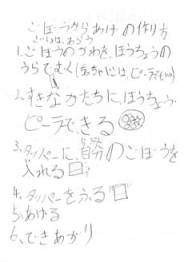 ごぼうからあげの作り方
1.ごぼうのかわを、ほうちょうの
うらでむく
2.すきなかたちに、ほうちょう、
ピーラできる
3.タッパーに、自分のごぼうを
入れる
4.タッパーをふる
5.あげる
6.できあがり